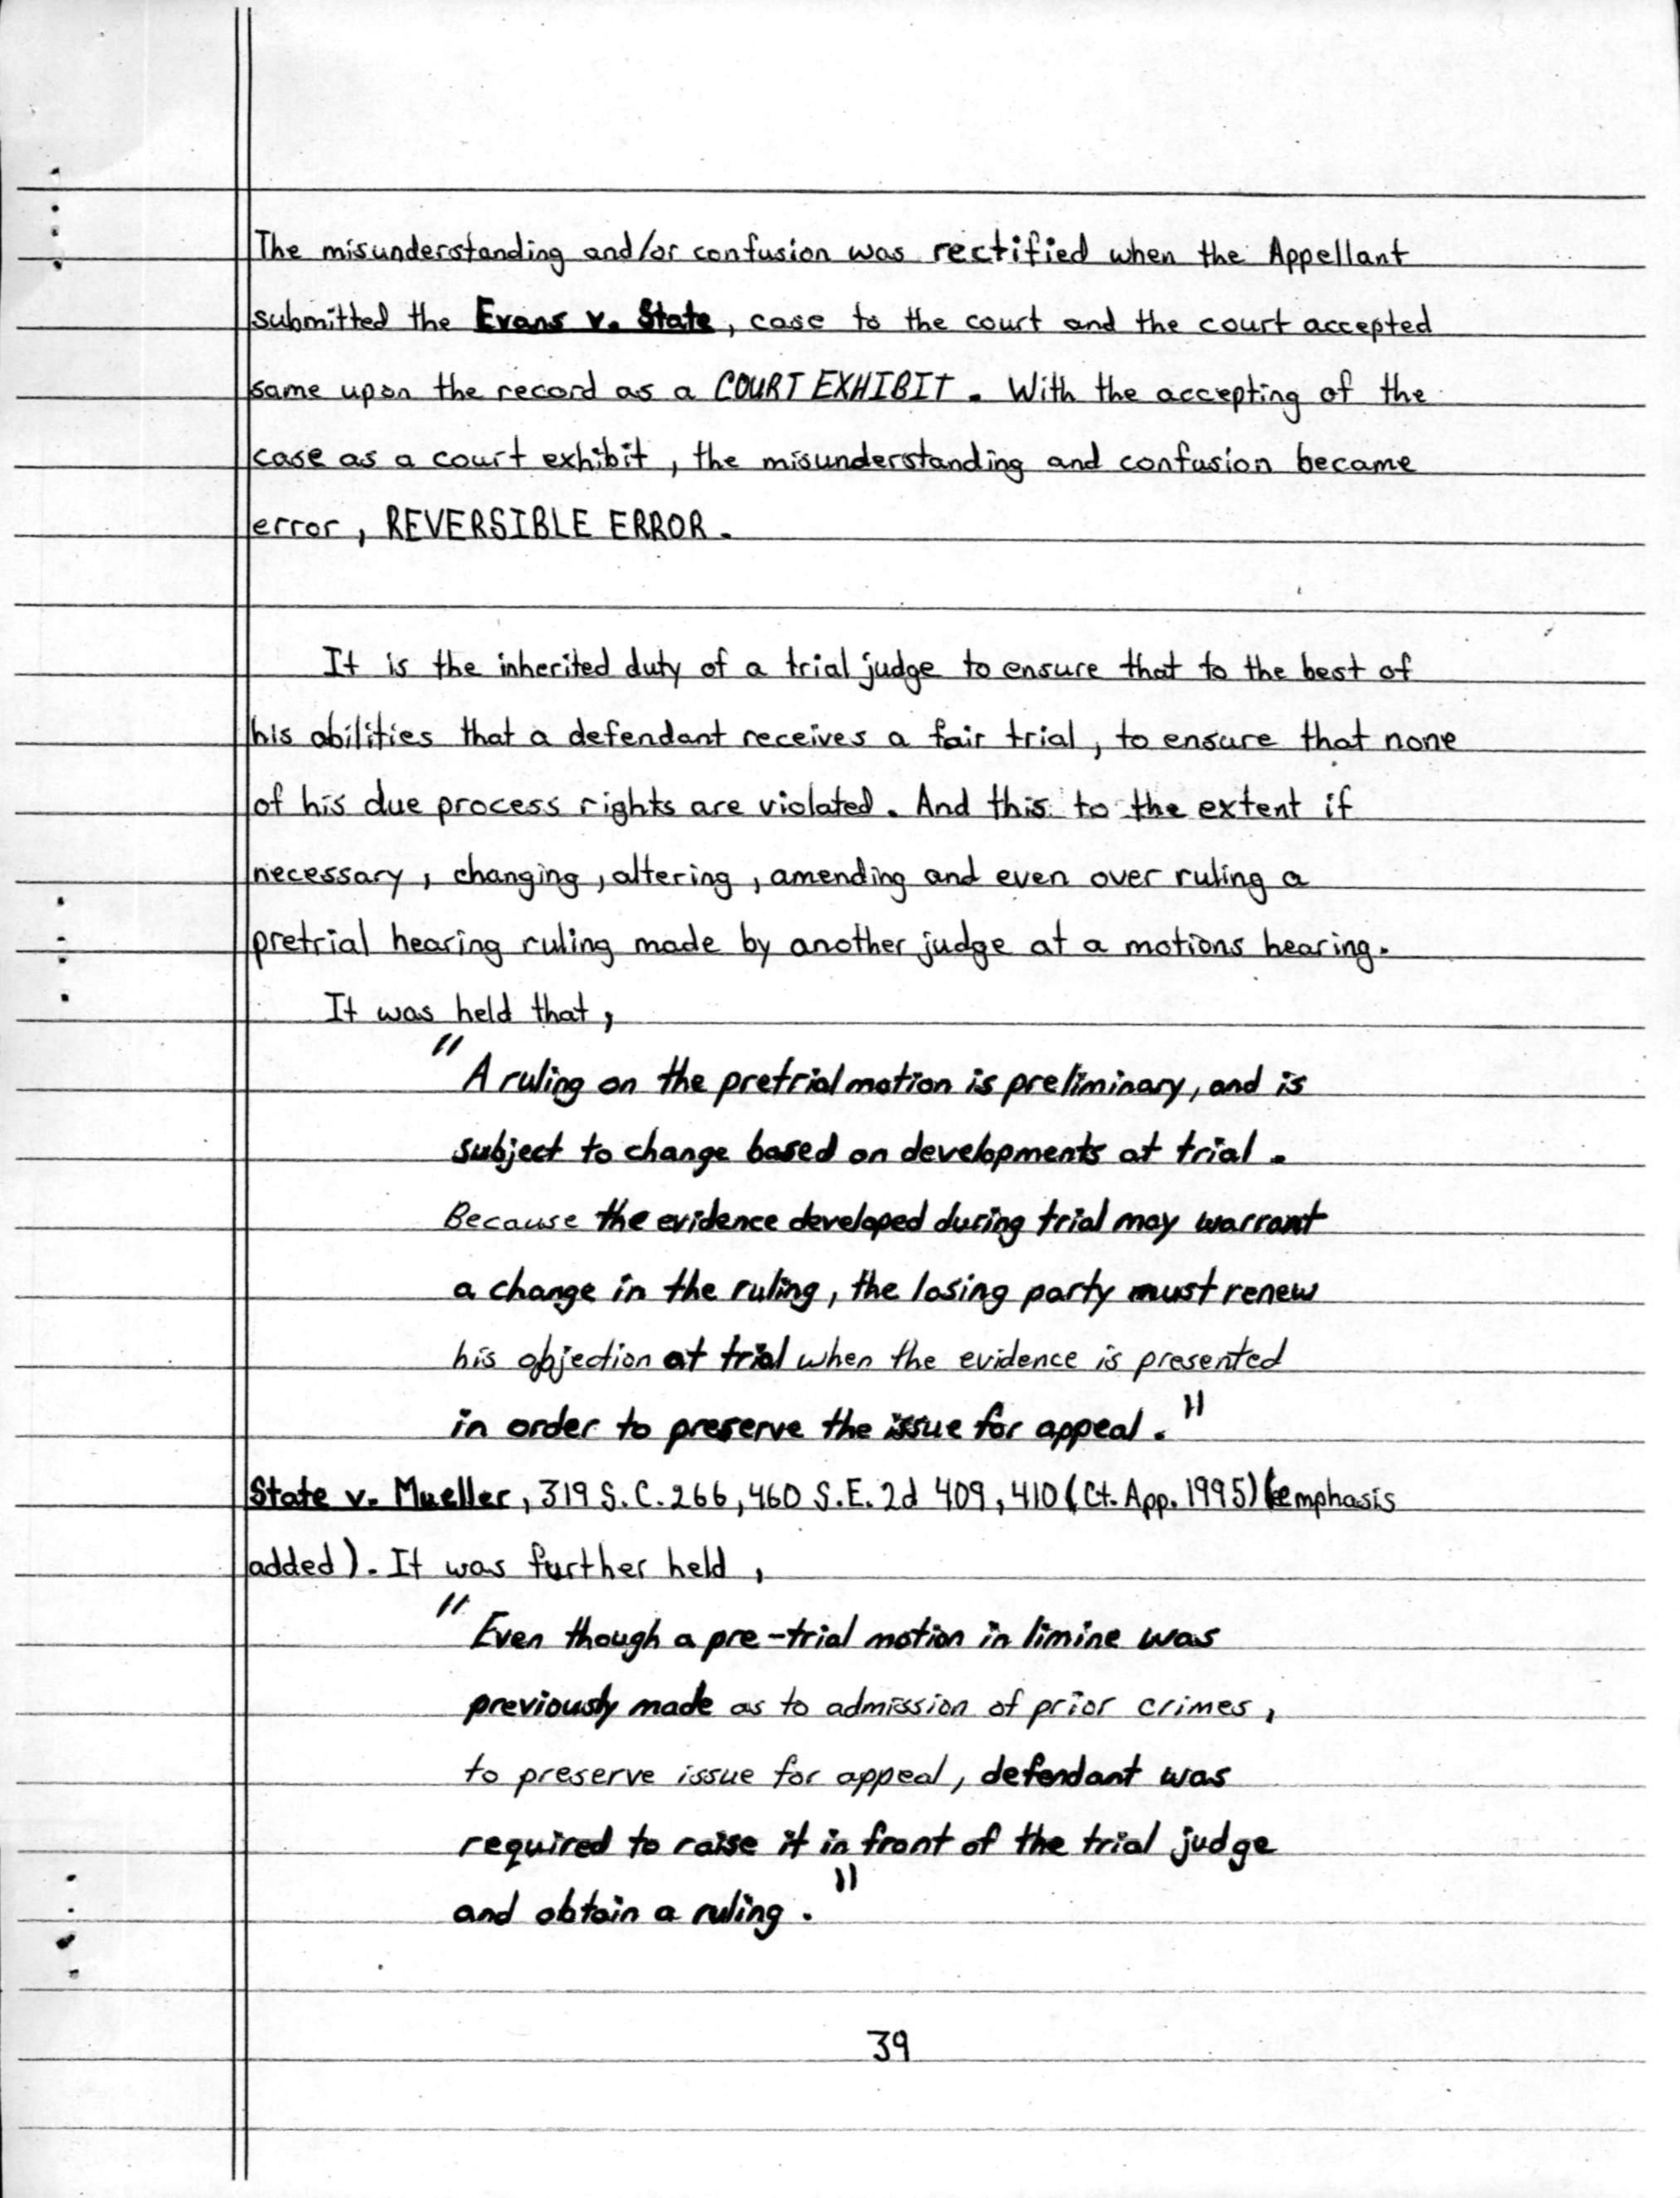 The misunderstanding and/or confusion was rectified when the Appellant
submitted the Evans v. State, case to the court and the court accepted
same upon the record as a COURT EXHIBIT. With the accepting of the
case as a court exhibit, the misunderstanding and confusion became
error, REVERSIBLE ERROR.
It is the inherited duty of a trial judge to ensure that to the best of
his abilities that a defendant receives a fair trial, to ensure that none
of his due process rights are violated. And this to the extent if
necessary, changing, altering, amending and even over ruling a
pretrial hearing ruling made by another judge at a motions hearing.
It was held that,
"A ruling on the pretrial motion is preliminary, and is
subject to change based on developments at trial.
Because the evidence developed during trial may warrant
a change in the ruling, the losing party must renew
his objection at trial when the evidence is presented
in order to preserve the issue for appeal."
State v. Mueller, 319 S.C. 266, 460 S.E. 2d 409, 410 (Ct. App. 1995) (emphasis
added). It was further held,
"Even though a pre-trial motion in limine was
previously made as to admission of prior crimes,
to preserve issue for appeal, defendant was
required to raise it in front of the trial judge
and obtain a ruling."
39